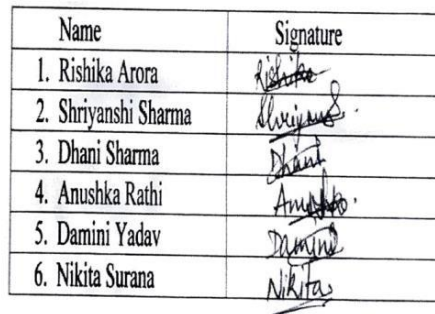 Name Signature
1. Rishika Arora Rishika
2. Shriyanshi Sharma
3. Dhani Sharma Dhani
4. Anushka Rathi
5. Damini Yadav Damini
6. Nikita Surana Nikita